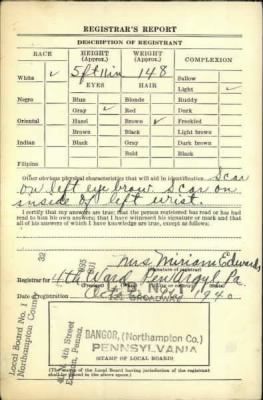 REGISTRAR'S REPORT
DESCRIPTION OF REGISTRANT
RACE HEIGHT (Approx.) WEIGHT (Approx.) COMPLEXION
White ✓ 5 ft 11 in 148 Sallow
EYES HAIR Light ✓
Negro Blue Blonde Ruddy
Gray ✓ Red Dark
Oriental Hazel Brown ✓ Freckled
Brown Black Light brown
Indian Black Gray Dark brown
Bald Black
Filipino
Other obvious physical characteristics that will aid in identification Scar
on left eye brow. scar on
inside of left wrist.
I certify that my answers are true; that the person registered has read or has had
read to him his own answers; that I have witnessed his signature or mark and that
all of his answers of which I have knowledge are true, except as follows:
32
Mrs Miriam Edwards
(Signature of registrar)
Registrar for 4th Ward Pen Argyl Pa
Date of registration Oct 1940
BROADWAY
BANGOR, (Northampton Co.)
PENNSYLVANIA
(STAMP OF LOCAL BOARD)
(The stamp of the Local Board having jurisdiction of the registrant
shall be placed in the above space.)
Local Board No. 1
Northampton County
4th Street
Easton, Penna.